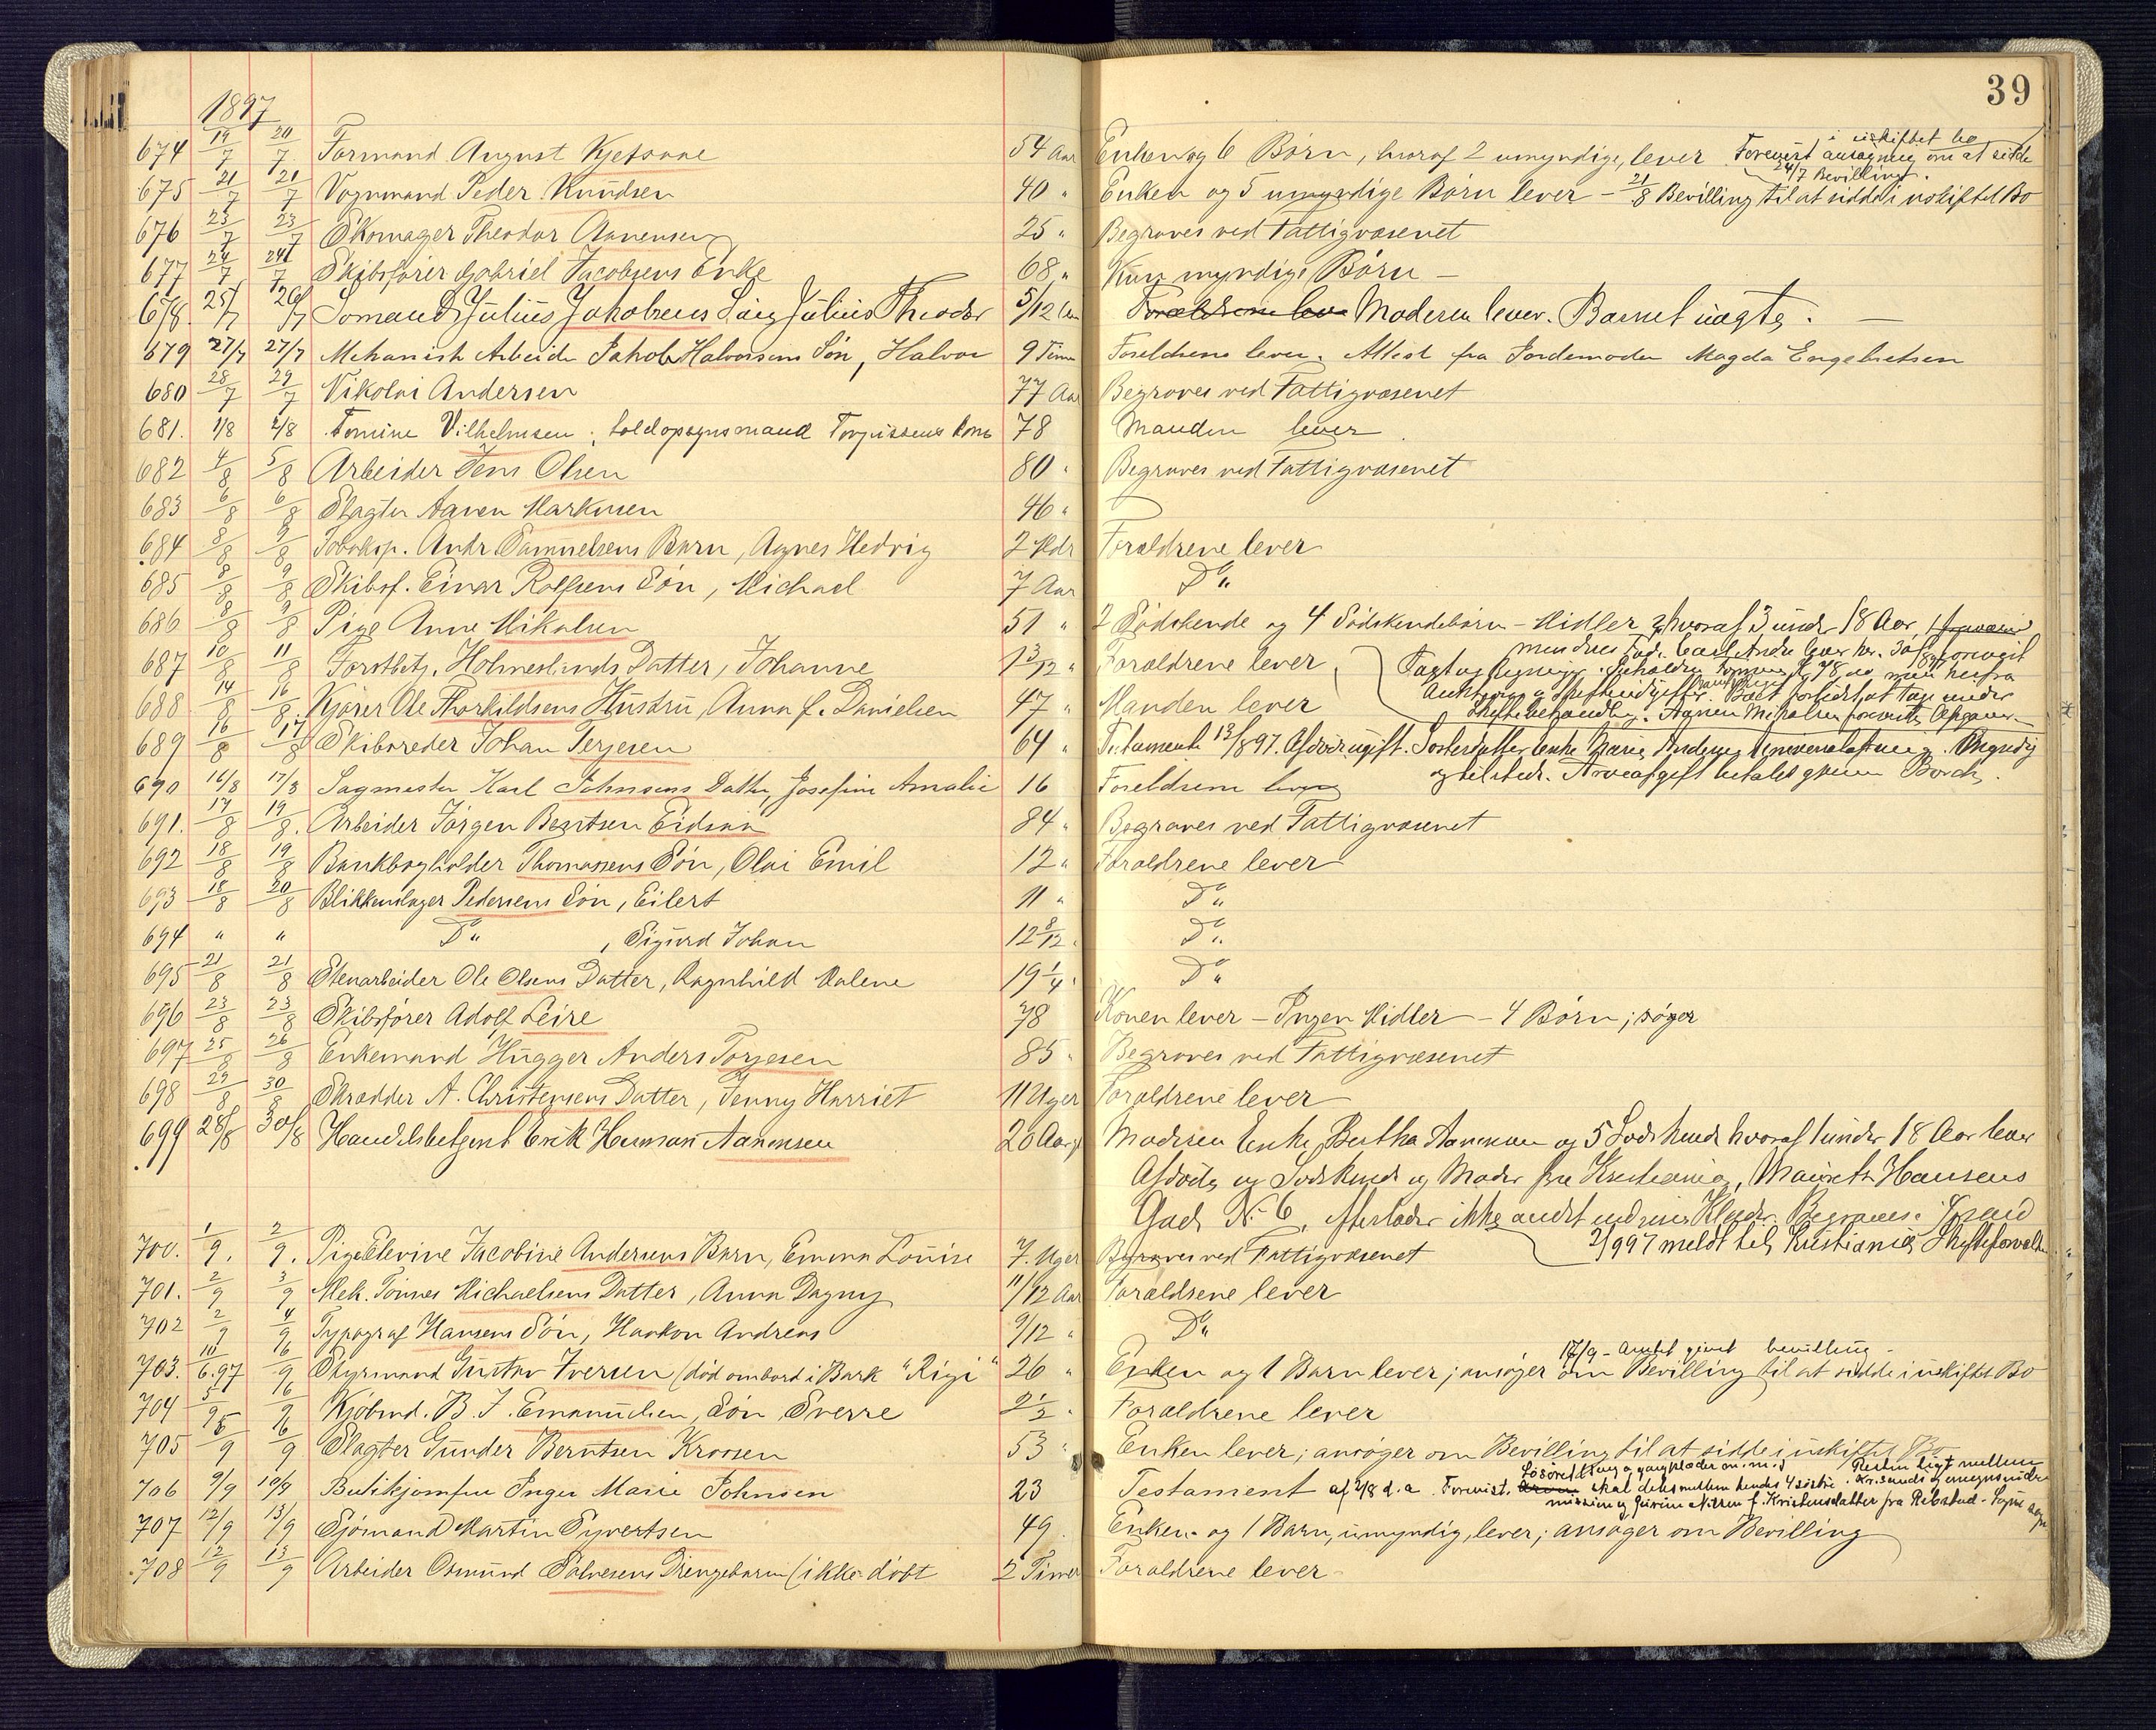 39
1897
674 19/7 20/7 Formand August Kjetsaae 54 Aar Enken og 6 Børn, hvoraf 2 umyndige, lever Forevist ansøgning om at sidde
i uskiftet bo
24/7 Bevilling.
675 21/7 21/7 Vognmand Peder Knudsen 40 " Enken og 5 umyndige Børn lever - 21/8 Bevilling til at sidde i uskiftet Bo
676 23/7 23/7 Skomager Theodor Aanensen 25 " Begraves ved Fattigvæsenet
677 24/7 24/7 Skibsfører Gabriel Jacobsens Enke 68 " Kun myndige Børn -
678. 25/7 26/7 Sømand Julius Jakobsens Søn Julius Theodor 5/12 Forældrene lever Moderen lever. Barnet uægte. -
679 27/7 27/7 Mekanisk Arbeider Jakob Halvorsens Søn, Halvor 9 Timer Forældrene lever. Attest fra Jordemoder Magda Engebretsen
680 28/7 29/7 Nikolai Andersen 77 Aar Begraves ved Fattigvæsenet
681. 1/8 2/8 Tomine Vilhelmsen, toldopsynsmand Torjussens kone 78 Manden lever
682 4/8 5/8 Arbeider Jens Olsen 80 " Begraves ved Fattigvæsenet
683 6/8 6/8 Slagter Aanen Markusen 46 "
684 8/8 9/8 Tobaksp. Andr. Samuelsens Barn, Agnes Hedvig 2 Mdr Forældrene lever
685 8/8 9/8 Skibsf. Einar Rolfsens Søn, Michael 7 Aar Do "
686 8/8 9/8 Pige Anne Mikalsen 51 " 2 Sødskende og 4 Sødskendebørn - Midler, hvoraf 3 under 18 Aar,
687 10/8 11/8 Forstbetj. Holmeslands Datter, Johanne 1 3/12 " Forældrene lever
688 14/8 16/8. Kjører Ole Thorkildsens Hustru, Anna f. Danielsen 47 " Manden lever
689 16/8 17/8 Skibsreder Johan Terjesen 64 " Testamente 13/8 97. Afdøde ugift. Søsterdatter Enke Marie Andersen Universalarving. Myndig
og tilstede. Arveafgift betalt gjennem Borch.
690 16/8 17/8 Sagmester Karl Johnsens Datter, Josefine Amalie 16 Forældrene lever
691. 17/8 19/8. Arbeider Jørgen Berntsen Eidsaa 84 " Begraves ved Fattigvæsenet
692 18/8 19/8 Bankbogholder Thomassens Søn, Olai Emil 12 " Forældrene lever
693 18/8 20/8 Blikkenslager Pedersens Søn, Eilert 11 " Do "
694 " " Do " , Sigurd Johan 12 8/12 " Do "
695 21/8 21/8 Stenarbeider Ole Olsens Datter, Ragnhild Malene 19 1/4 " Do "
696 23/8 23/8 Skibsfører Adolf Leire 78 Konen lever - Ingen Midler - 4 Børn; søger
697 25/8 26/8 Enkemand Hugger Anders Torjesen 85 " Begraves ved Fattigvæsenet
698 29/8 30/8 Skrædder A. Christensens Datter, Jenny Harriet 11 Uger Forældrene lever
699 28/8 30/8 Handelsbetjent Erik Herman Aanensen 20 Aar Moderen Enke Bertha Aanensen og 5 Sødskende hvoraf 1 under 18 Aar lever
Afdøde og Sødskende og Moder fra Kristiania, Mauritz Hansens
Gade No 6, efterlader ikke andet end sine Klæder.
2/9 97 meldt til Kristiania Skifteforvalter
700. 1/9. 2/9. Pige Elevine Jacobine Andersens Barn, Emma Louise 7. Uger Begraves ved Fattigvæsenet
701. 2/9 3/9 Mek. Tønnes Michaelsens Datter, Anna Dagny 11/12 Aar Forældrene lever
702 2/9 4/9 Typograf Hansens Søn, Haakon Andreas 9/12 " Do "
17/9 - Amtet givet bevilling -
703. 10/6.97 6/9 Styrmand Gustav Iversen (død ombord i Bark "Rigi" 26 " Enken og 1 Barn lever; ansøger om Bevilling til at sidde i uskiftet Bo
704 5/9 6/9 Kjøbmd. B. J. Emanuelsen, Søn Sverre 2 1/2 " Forældrene lever
705 5/9 6/9 Slagter Gunder Berntsen Kroosen 53 " Enken lever; ansøger om Bevilling til at sidde i uskiftet Bo
706 9/9 10/9 Butikjomfru Inger Marie Johnsen 23 Testament af 2/8 d.a. Forevist. skal deles mellem hendes 4 søstre.
707 12/9 13/9 Sjømand Martin Syvertsen 49. Enken og 1 Barn, umyndig, lever; ansøger om Bevilling
708 12/9 13/9 Arbeider Osmund Salvesens Drengebarn (ikke døbt 2 Timer Forældrene lever -